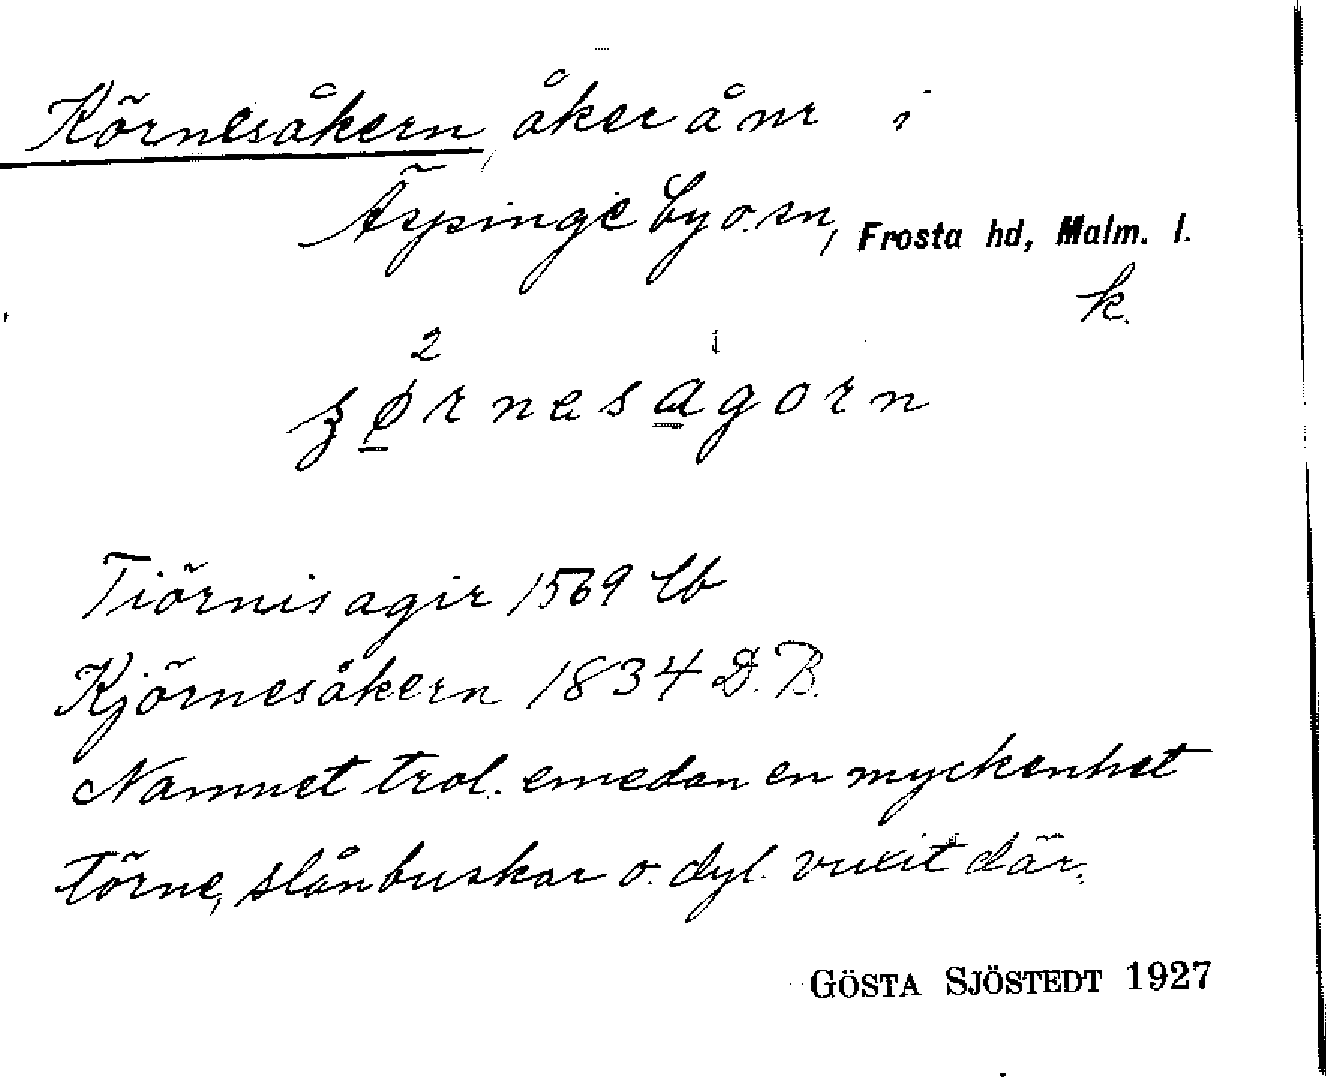 Körnesåkern, åker å nr i
Äspinge by o. sn, Frosta hd, Malm. l.
k.
2 1
ʒørnesagorn
Tiörnis agir 1569 lb
Kjörnesåkern 1834 D.B.
Namnet trol. emedan en myckenhet
törne, slånbuskar o. dyl. vuxit där.
GÖSTA SJÖSTEDT 1927